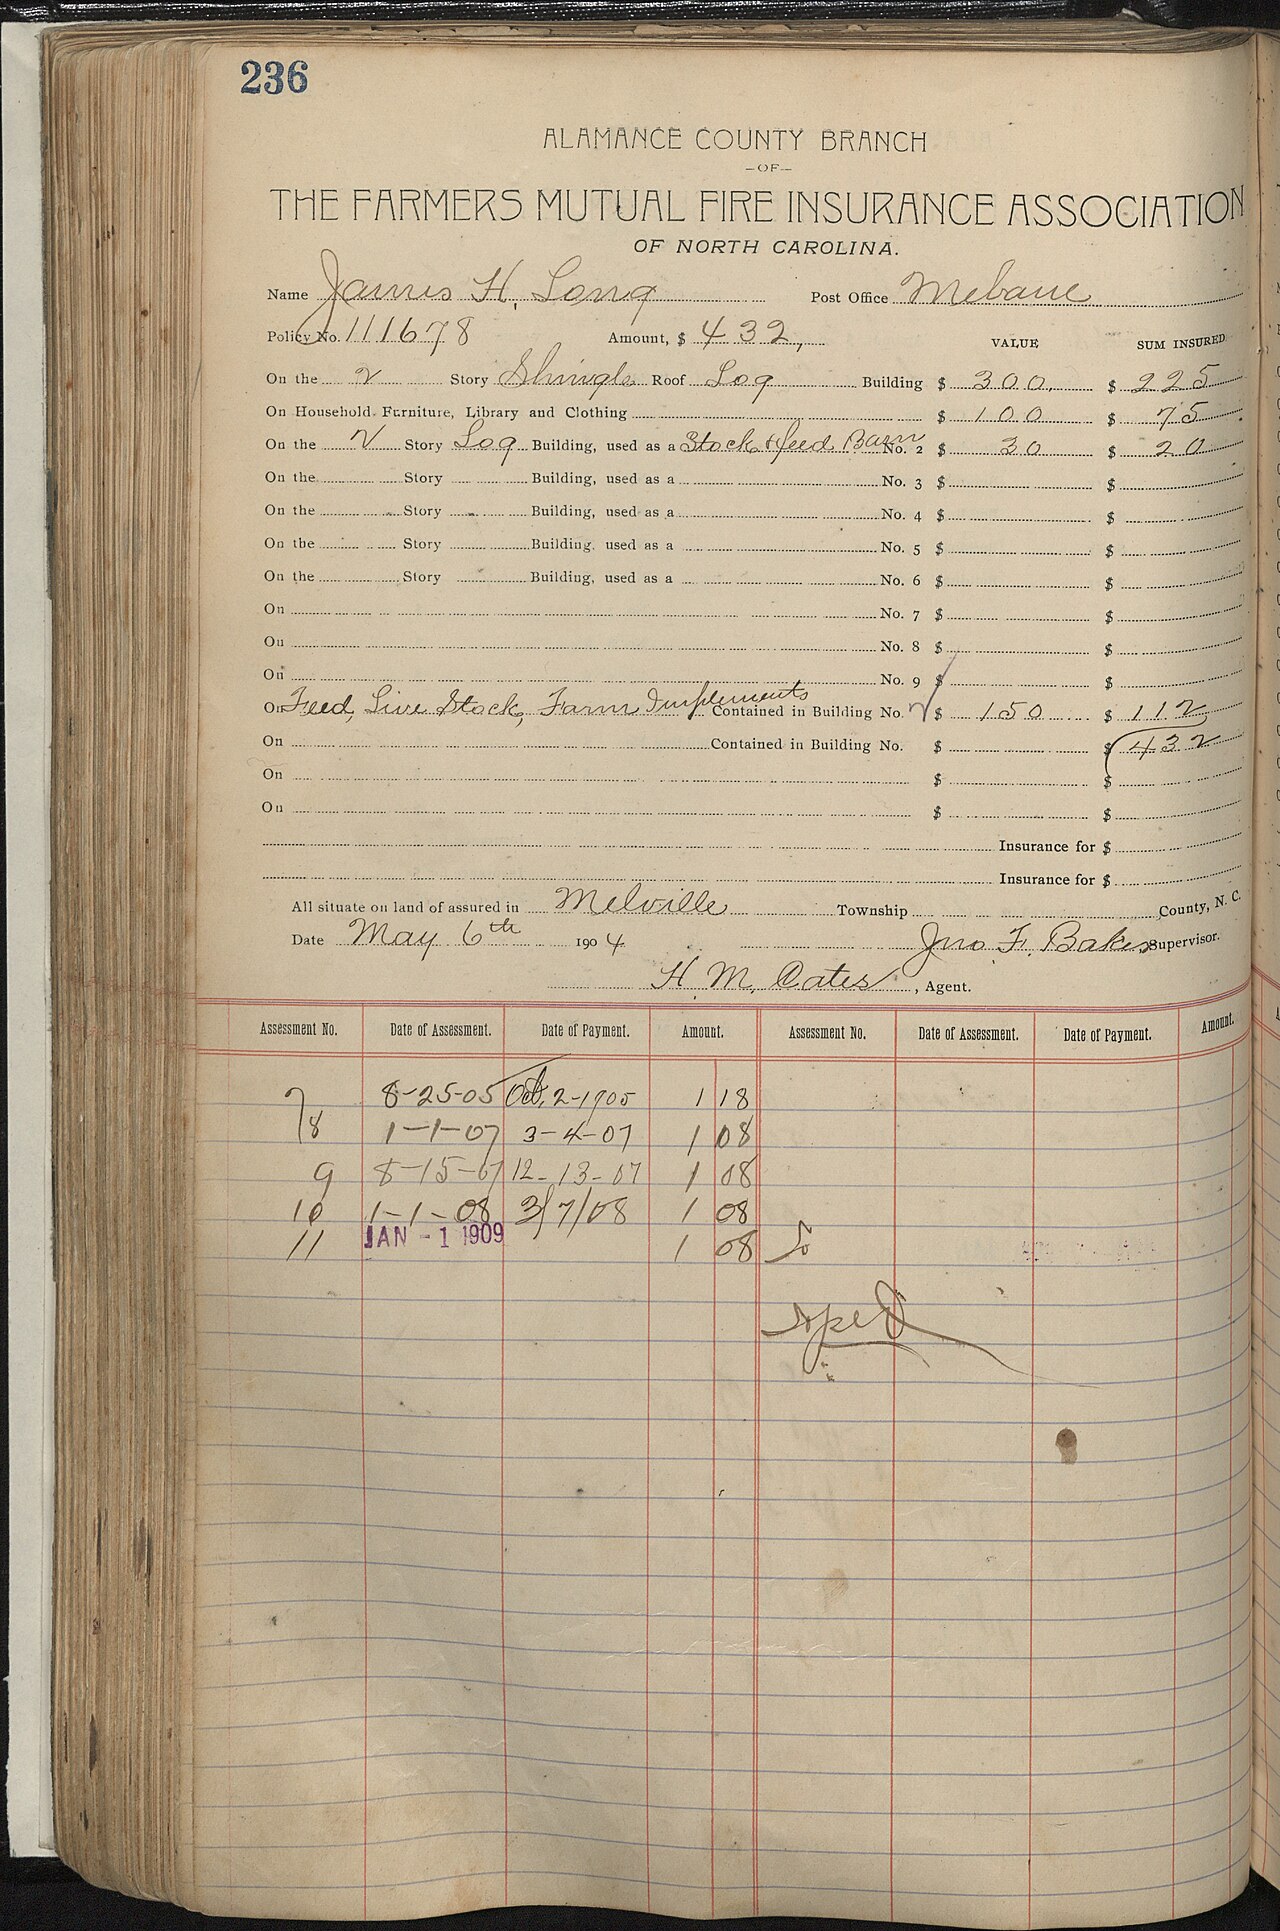 236
ALAMANCE COUNTY BRANCH
-OF-
THE FARMERS MUTUAL FIRE INSURANCE ASSOCIATION
OF NORTH CAROLINA.
Name James H. Long Post Office Mebane
Policy No. 111678 Amount, $ 432,
VALUE SUM INSURED
On the 2 Story Shingle Roof Log Building $ 300. $ 225
On Household Furniture, Library and Clothing $ 100 $ 75
On the 2 Story Log Building, used as a Stock & feed Barn No. 2 $ 30 $ 20
On the Story Building, used as a No. 3 $ $
On the Story Building, used as a No. 4 $ $
On the Story Building, used as a No. 5 $ $
On the Story Building, used as a No. 6 $ $
On No. 7 $ $
On No. 8 $ $
On No. 9 $ $
On Feed, Live Stock, Farm Implements Contained in Building No. 2 $ 150 $ 112
On Contained in Building No. $ $ 432
On $ $
On $ $
Insurance for $
Insurance for $
All situate on land of assured in Melville Township County, N. C.
Date May 6th 1904 Jno. F. Baker Supervisor.
H. M. Cates, Agent.
Assessment No. Date of Assessment. Date of Payment. Amount. Assessment No. Date of Assessment. Date of Payment. Amount.
7 8-25-05 Oct. 2-1905 1 18
8 1-1-07 3-4-07 1 08
9 8-15-07 12-13-07 1 08
10 1-1-08 3/7/08 1 08
11 JAN -1 1909 1 08